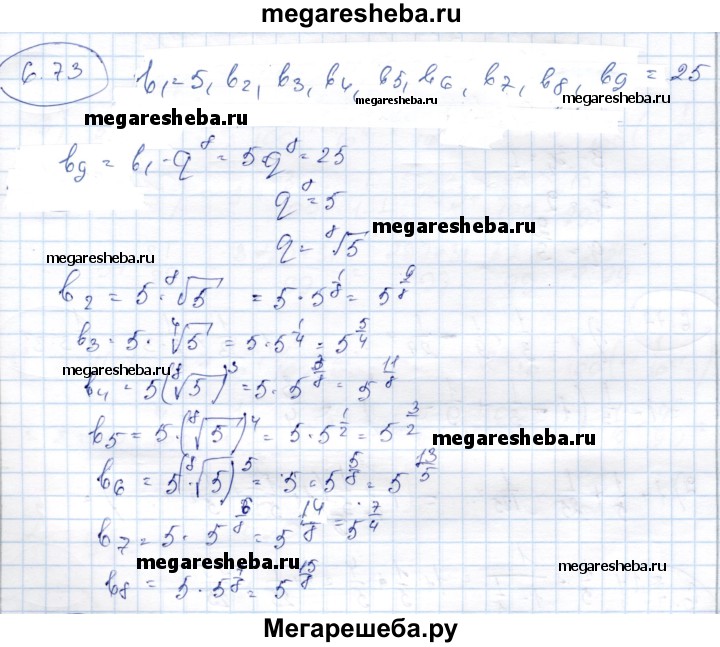 megaresheba.ru
6.73 b₁=5, b₂, b₃, b₄, b₅, b₆, b₇, b₈, b₉ = 25
megaresheba.ru megaresheba.ru
megaresheba.ru
b₉ = b₁·q⁸ = 5·q⁸ = 25
q⁸ = 5
megaresheba.ru
q = ⁸√5
megaresheba.ru
b₂ = 5·⁸√5 = 5·5^(1/8) = 5^(9/8)
b₃ = 5·⁴√5 = 5·5^(1/4) = 5^(5/4)
megaresheba.ru
b₄ = 5(⁸√5)³ = 5·5^(3/8) = 5^(11/8)
b₅ = 5·(⁸√5)⁴ = 5·5^(1/2) = 5^(3/2)
megaresheba.ru
b₆ = 5(⁸√5)⁵ = 5·5^(5/8) = 5^(13/5)
b₇ = 5·5^(6/8) = 5^(14/8) = 5^(7/4)
megaresheba.ru megaresheba.ru
b₈ = 5·5^(7/8) = 5^(15/8)
Мегарешеба.ру